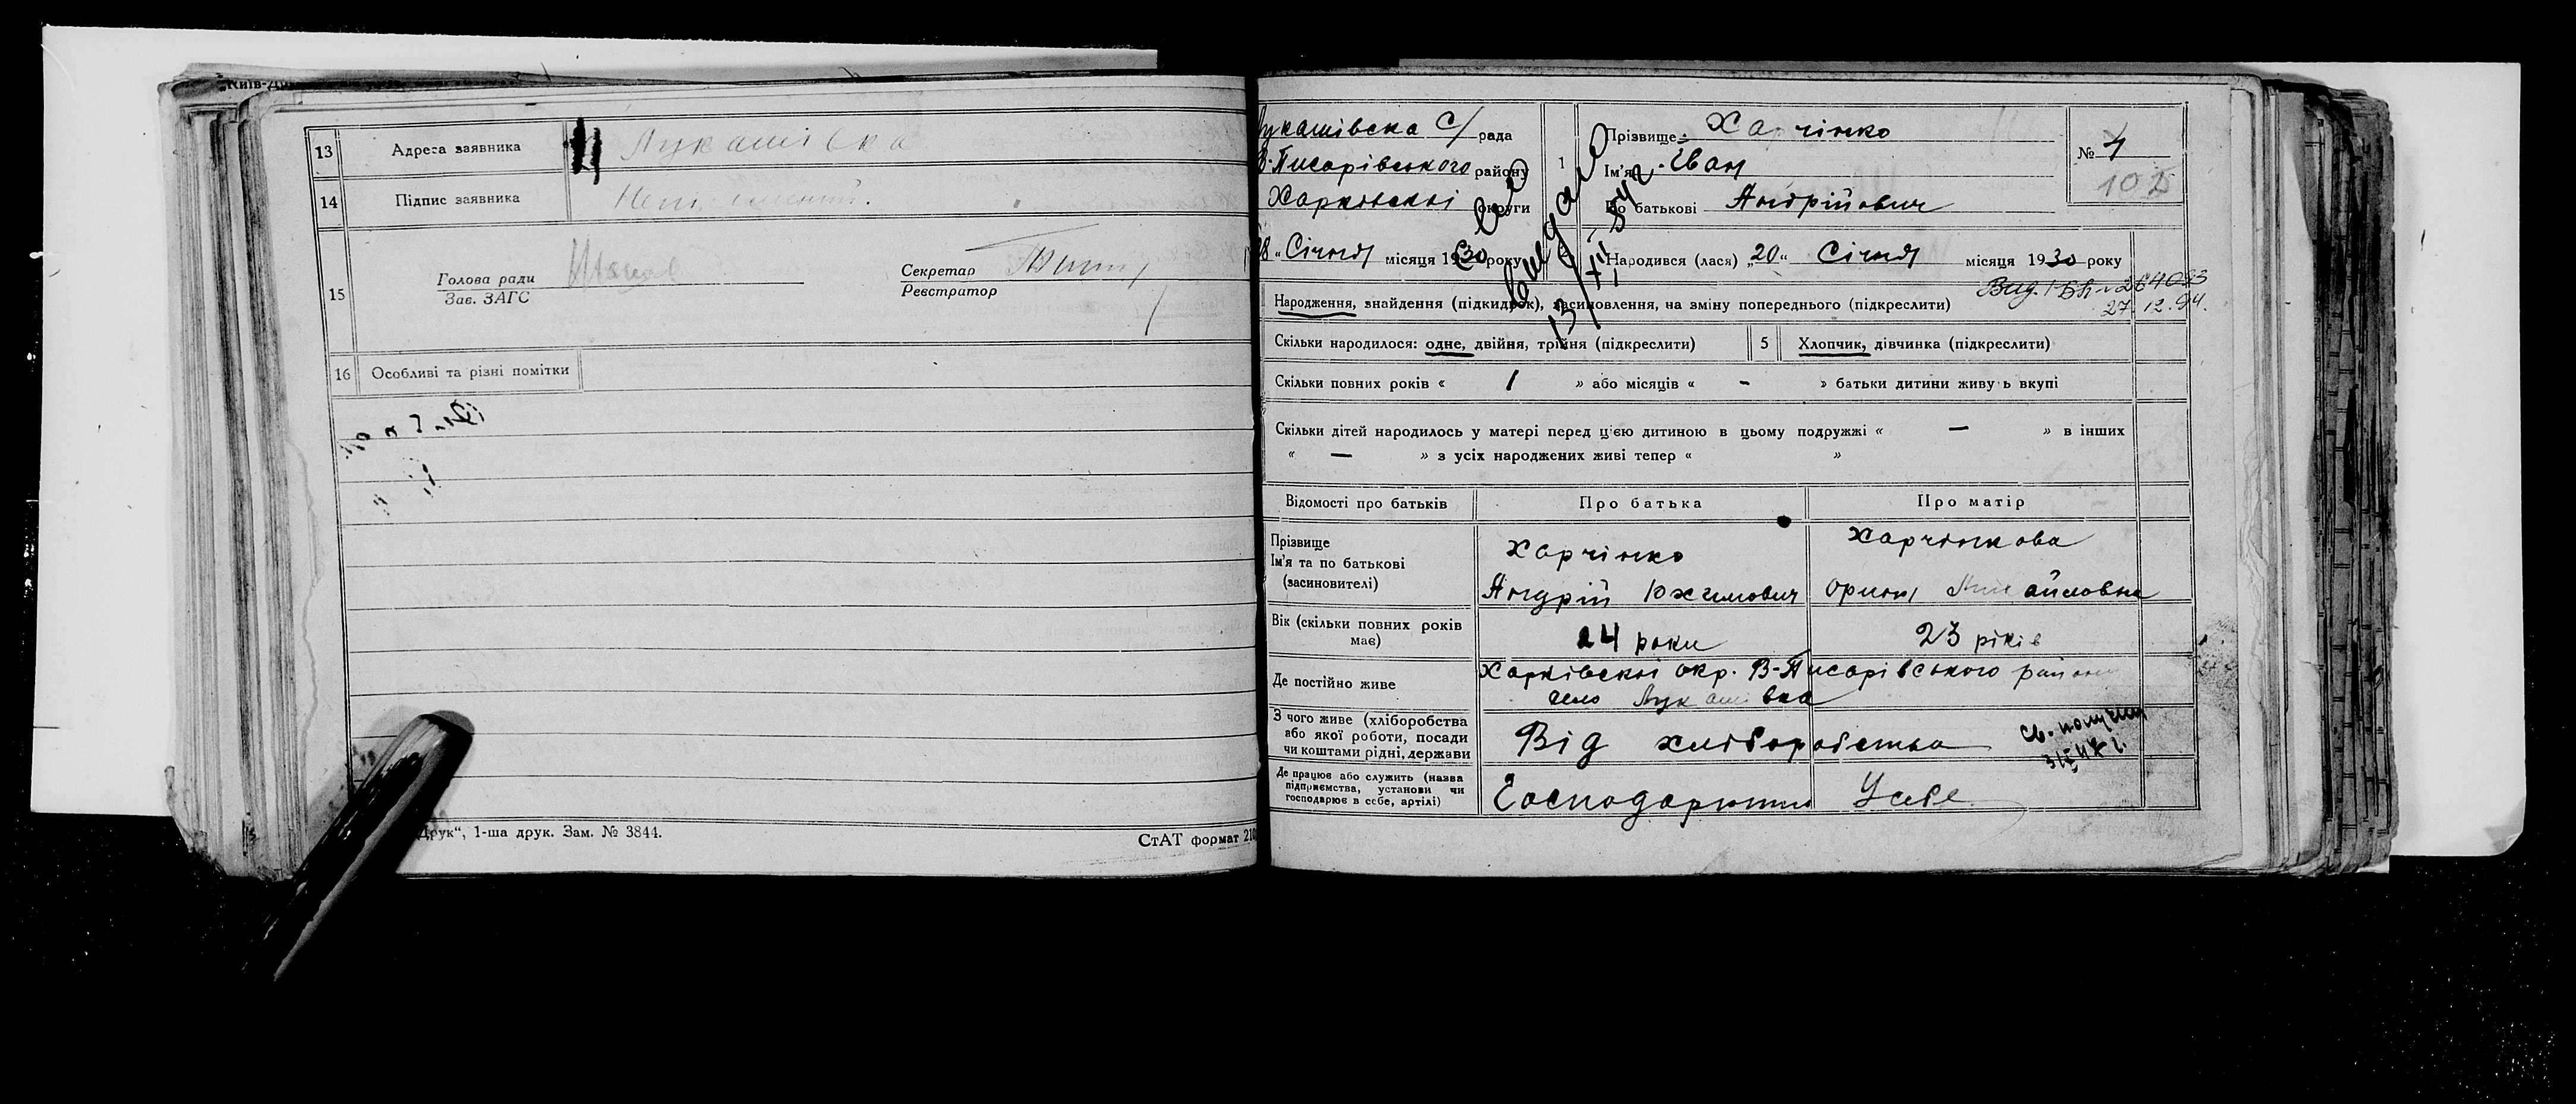 Київ-Др
13 Адреса заявника Лукашівка
14 Підпис заявника
15 Голова ради
Зав. ЗАГС
Секретар
Реєстратор
16 Особливі та різні помітки
Друк“, 1-ша друк. Зам. № 3844.
СтАТ формат 210
Лукашівска С/рада
В-Писарівського району
Харківскої округи
28 „ Січня місяця 1930 року
1 Прізвище Харчінко
Ім'я Іван
По батькові Андрійович
№ 4
102
Народився (лася) „20“ Січня місяця 1930 року
видано
13/XII
Вид. I БК № 264093
27.12.94.
Народження, знайдення (підкидьок), засиновлення, на зміну попереднього (підкреслити)
Скільки народилося: одне, двійня, трійня (підкреслити) 5 Хлопчик, дівчинка (підкреслити)
Скільки повних років « 1 » або місяців « - » батьки дитини живуть вкупі
Скільки дітей народилось у матері перед цією дитиною в цьому подружжі « — » в інших
« — » з усіх народжених живі тепер « »
Відомості про батьків Про батька Про матір
Прізвище
Ім'я та по батькові
(засиновителі)
Харчінко
Андрій Юхимович
Харчінкова
Орина Михайловна
Вік (скільки повних років
має)
24 роки 23 ріків
Де постійно живе
Харківскої окр. В-Писарівського району
село Лукашівка
З чого живе (хліборобства
або якої роботи, посади
чи коштами рідні, держави
Від хліборобства
св. получил
Де працює або служить (назва
підприємства, установи чи
господарює в себе, артілі)
Господарюють Усебе